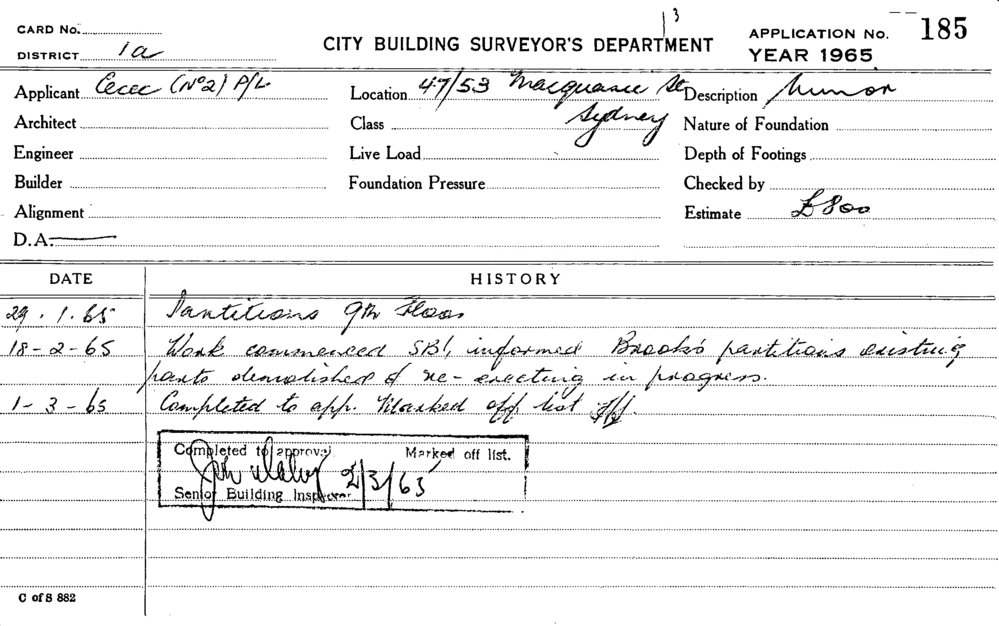 13
CARD No.
DISTRICT 1a
CITY BUILDING SURVEYOR'S DEPARTMENT
APPLICATION No. 185
YEAR 1965
Applicant Cecec (No2) P/L
Location 47/53 Macquarie St
Sydney
Description Minor
Architect
Class
Nature of Foundation
Engineer
Live Load
Depth of Footings
Builder
Foundation Pressure
Checked by
Alignment
Estimate £800
D.A. —
DATE HISTORY
29.1.65 Partitions 9th Floor
18-2-65 Work commenced SBI, informed Brooks partitions existing
parts demolished & re-erecting in progress.
1-3-65 Completed to app. Marked off list
Completed to approval Marked off list.
2/3/65
Senior Building Inspector
C of S 882